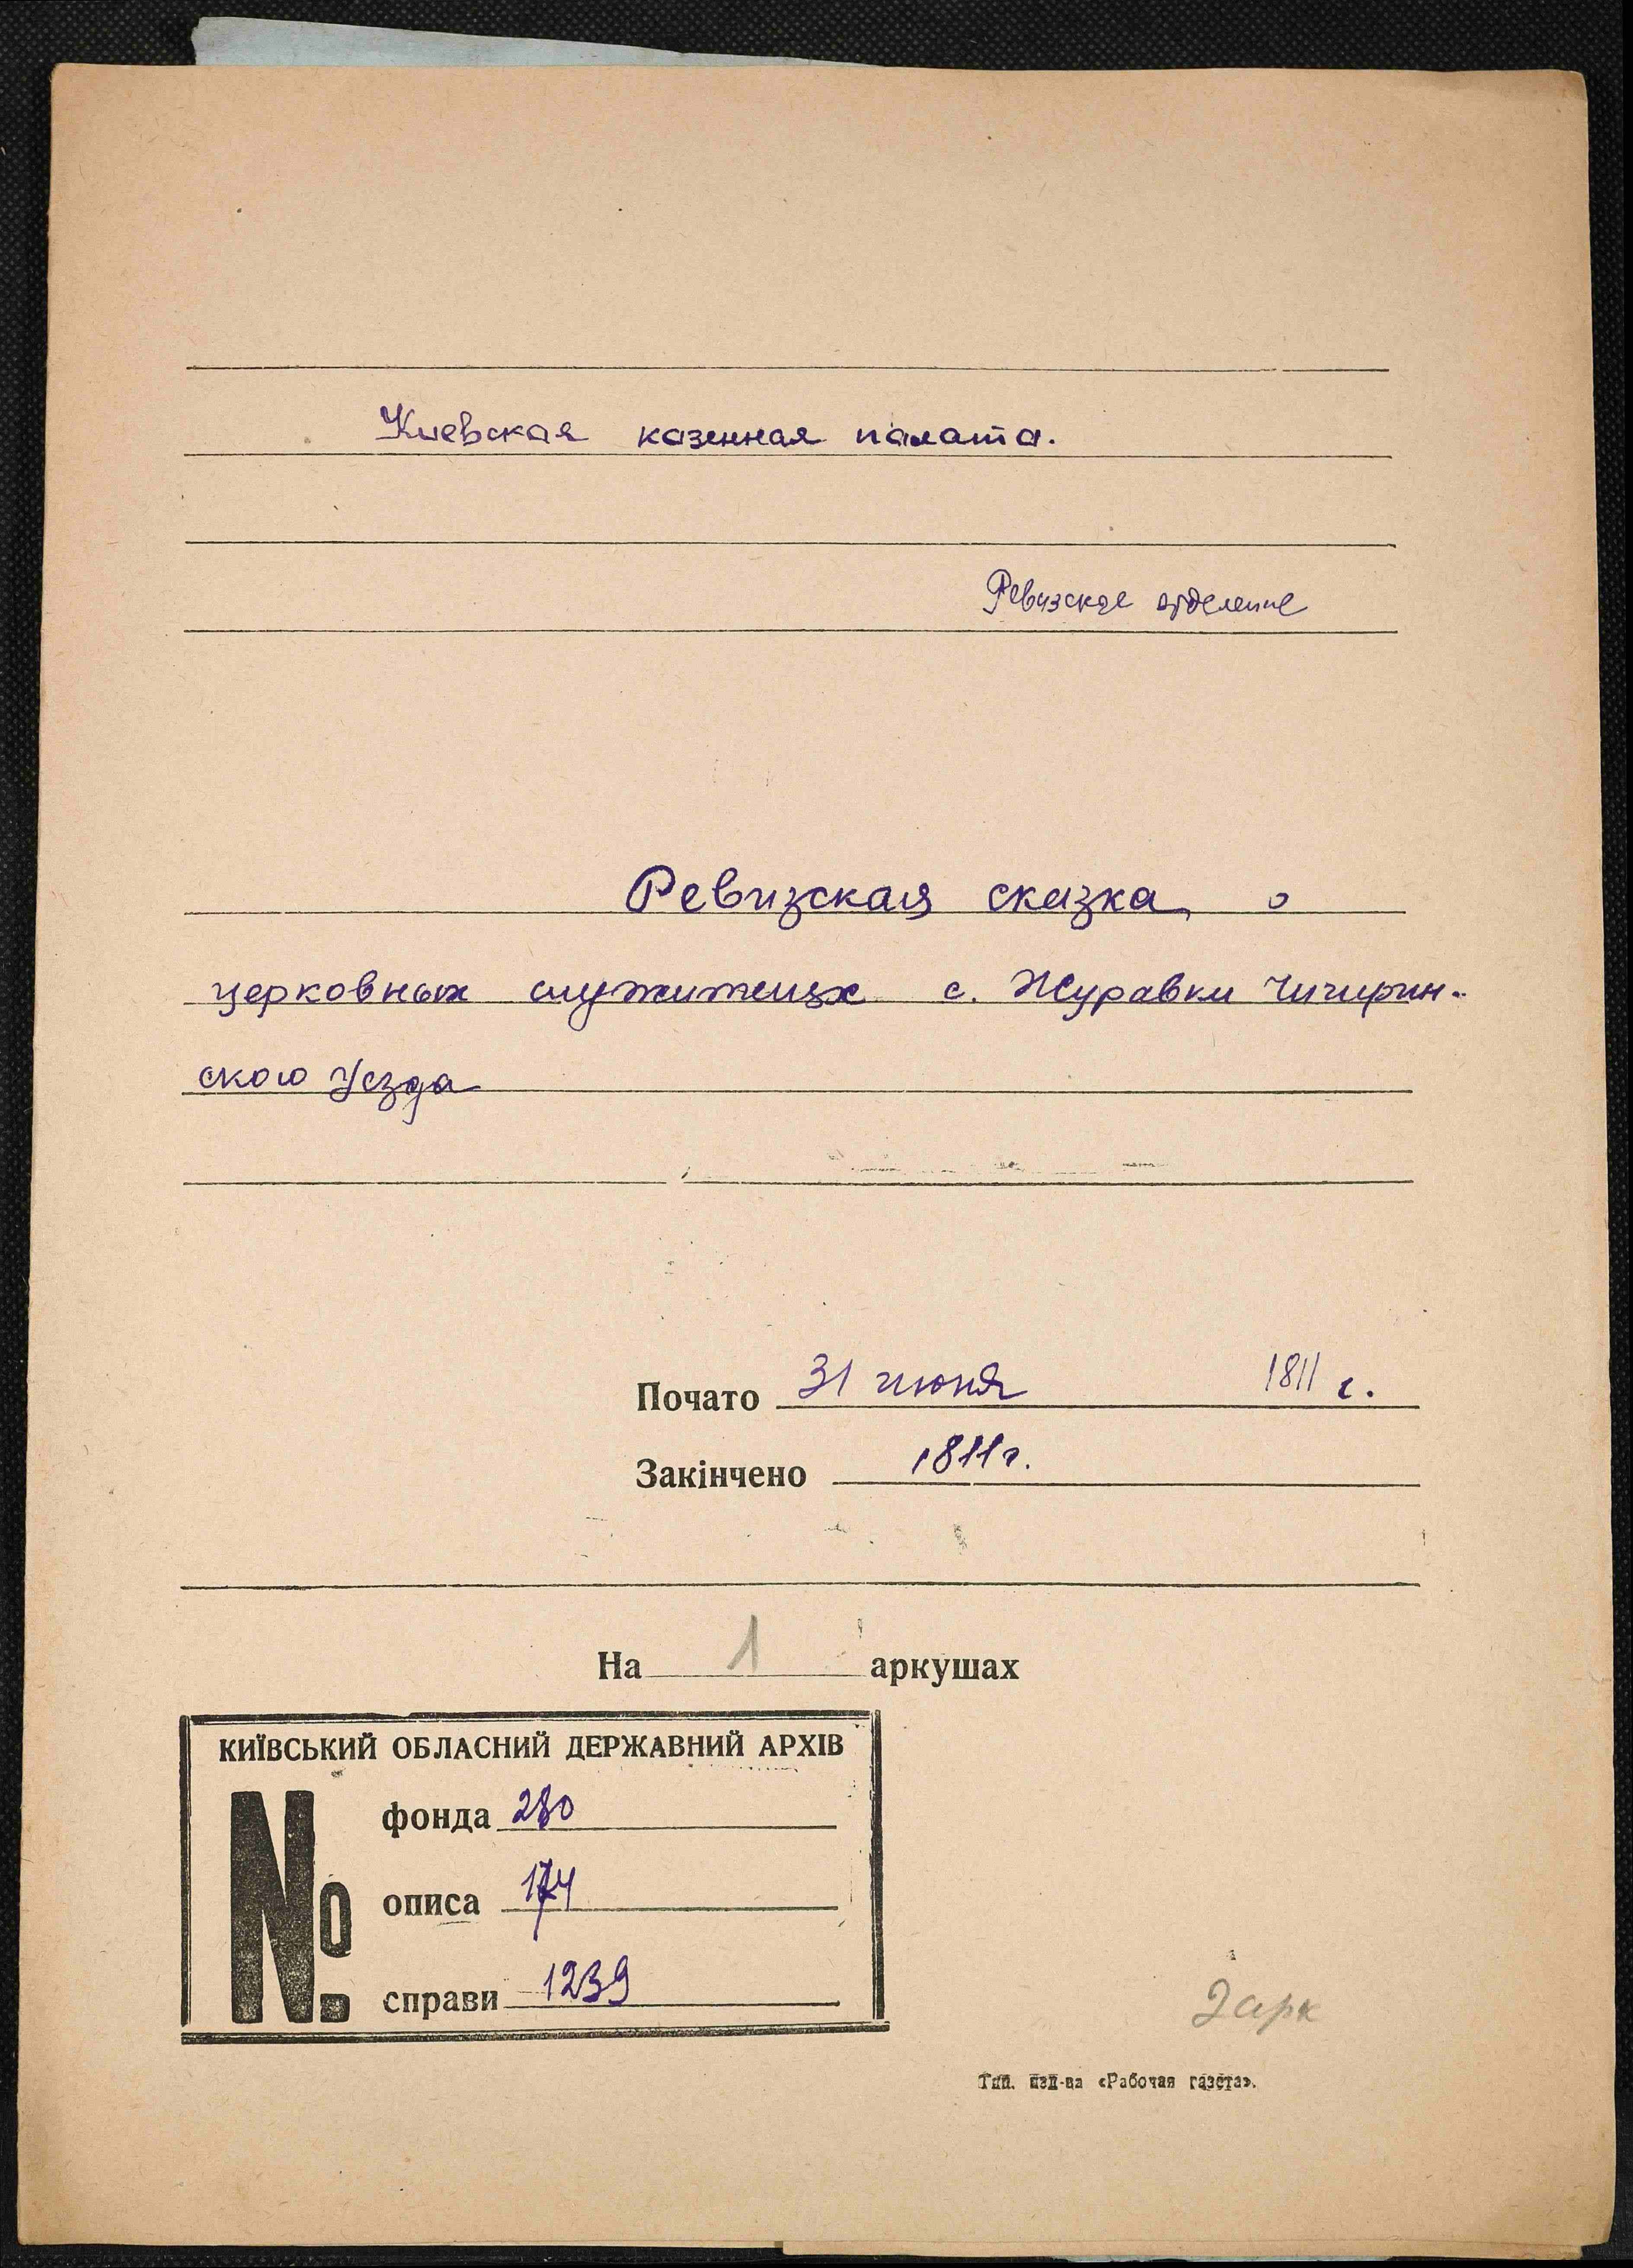 Киевская казенная палата.
Ревизское отделение
Ревизская сказка о
церковных служителях с. Журавки Чигирин-
ского Уезда
Почато 31 июня 1811 г.
Закінчено 1811 г.
На 1 аркушах
КИЇВСЬКИЙ ОБЛАСНИЙ ДЕРЖАВНИЙ АРХІВ
№
фонда 280
описа 174
справи 1239
2 арк
Тип. изд-ва «Рабочая газета».